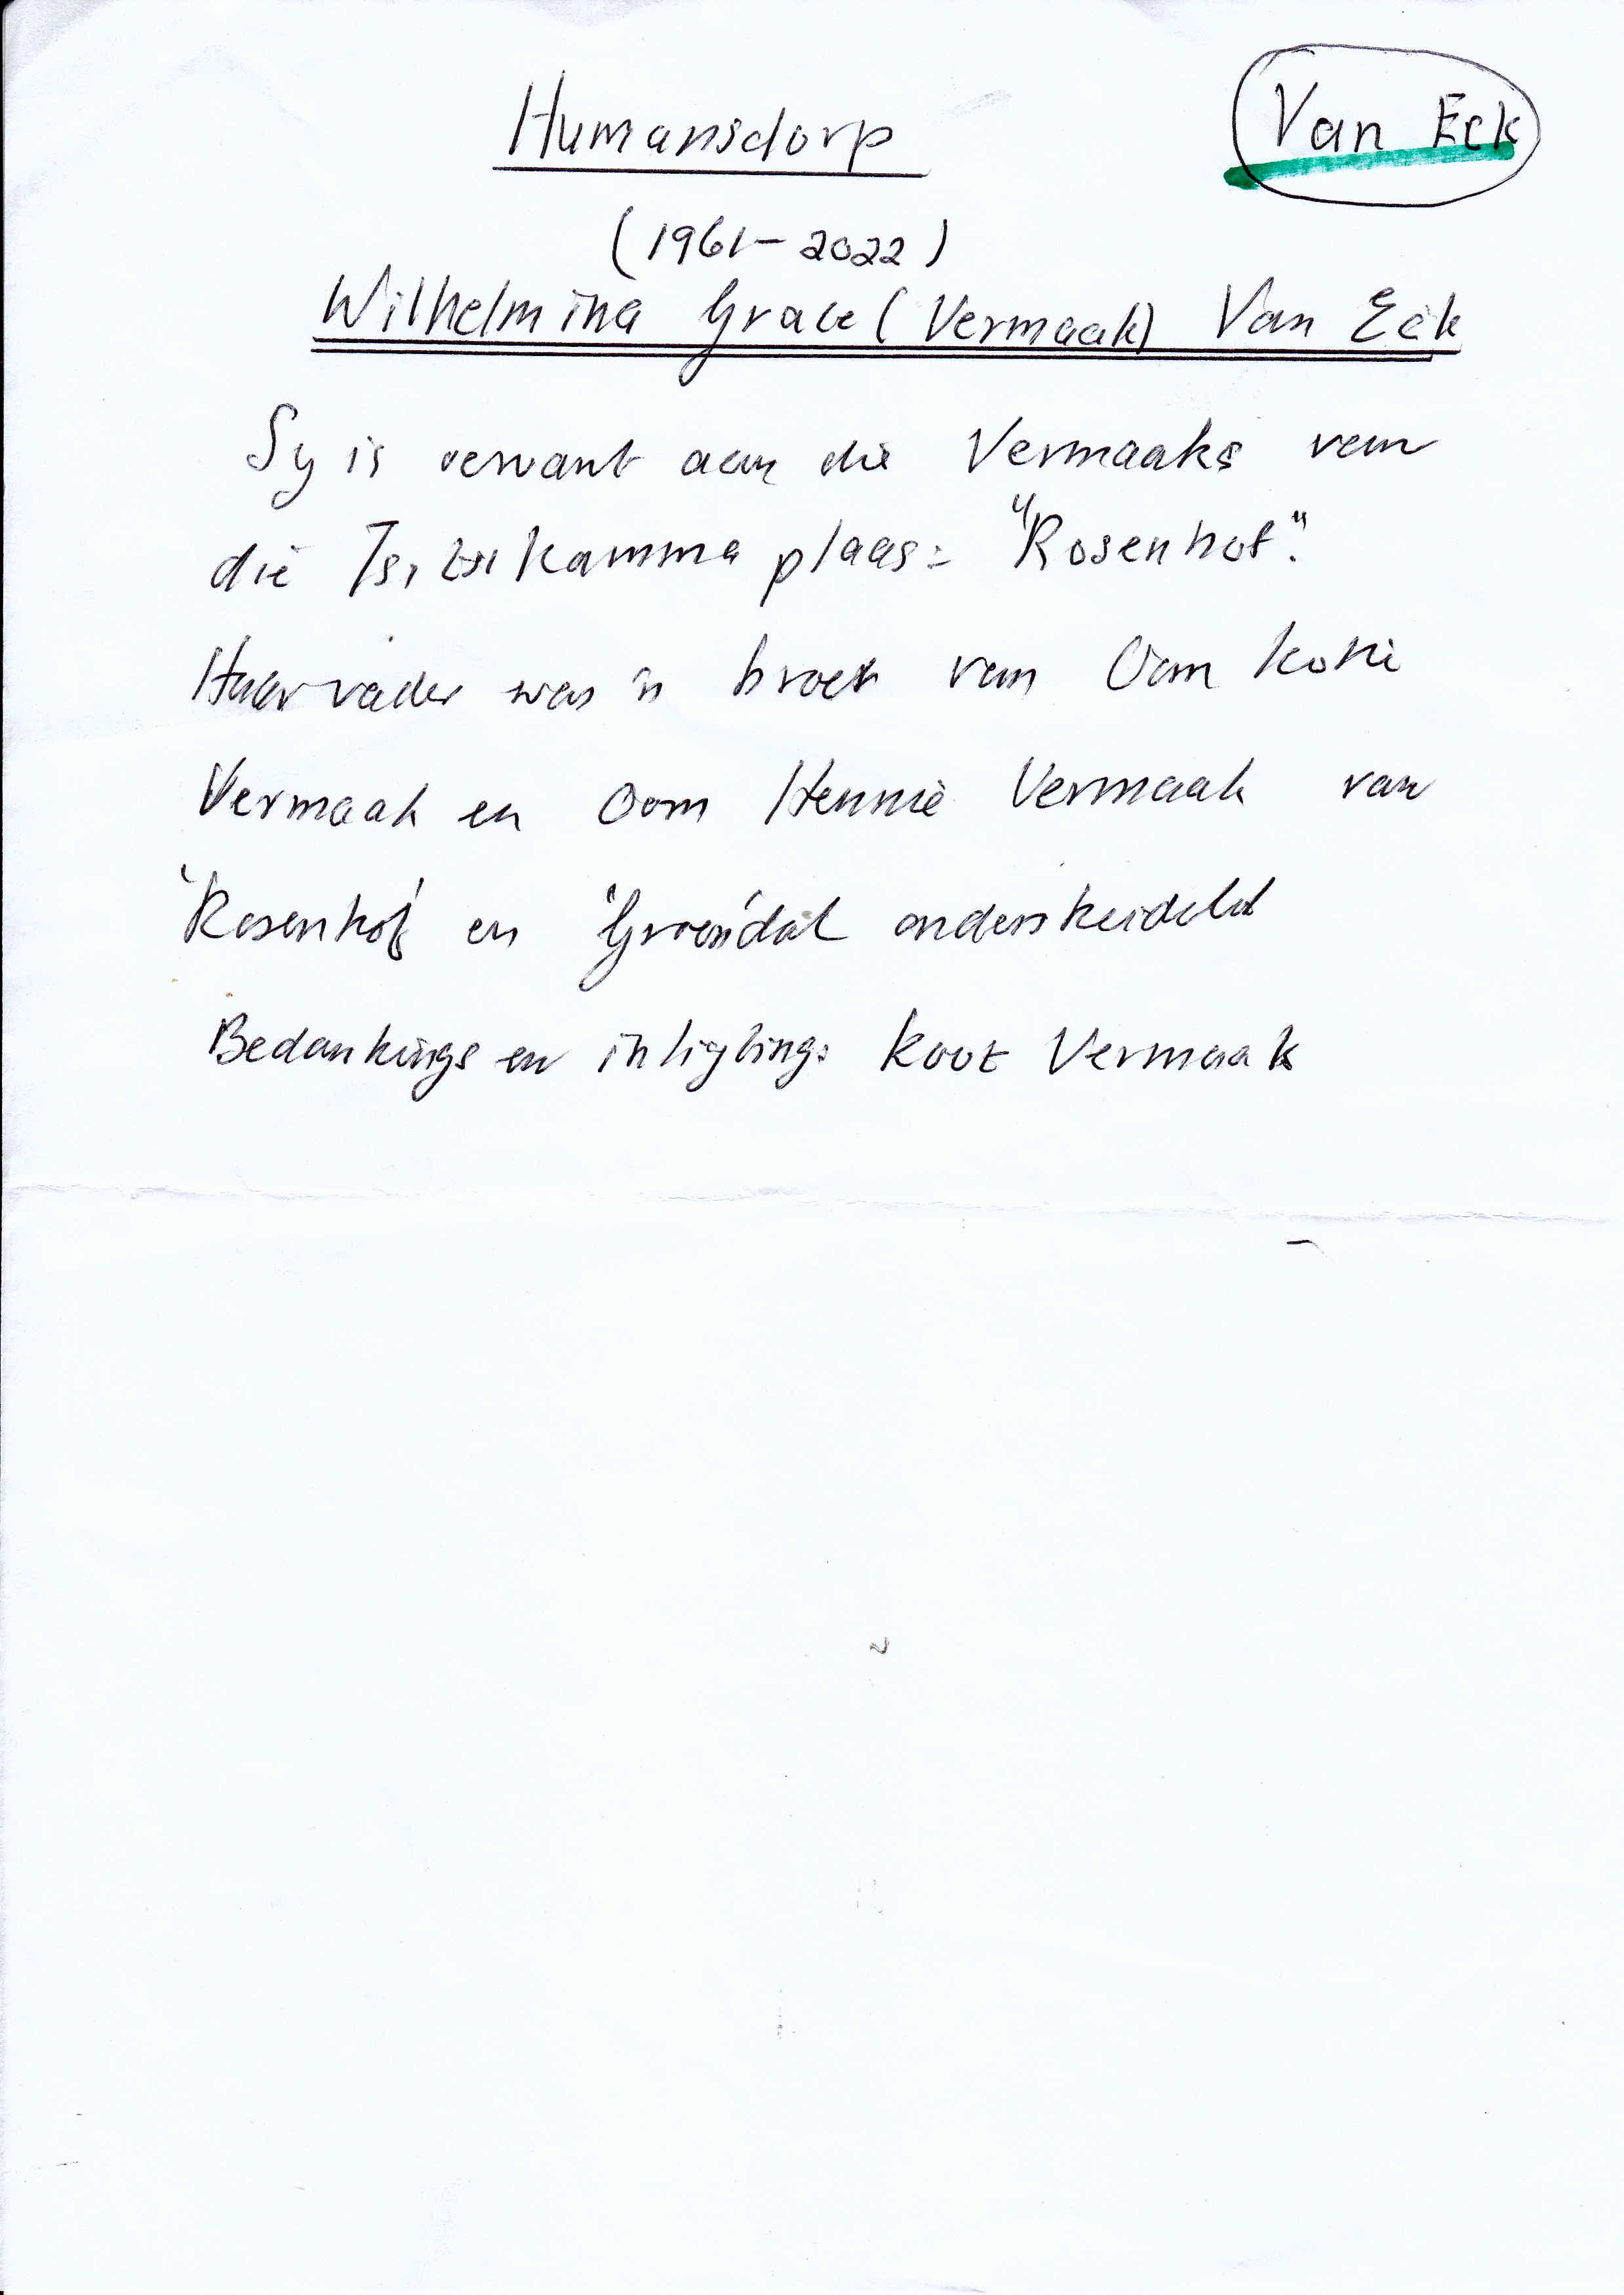 Humansdorp
Van Eck
(1961-2022)
Wilhelmina Grace (Vermaak) Van Eck
Sy is verwant aan die Vermaaks van
die Tsitsikamma plaas: "Rosenhof".
Haar vader was 'n broer van Oom
Vermaak en Oom Hennie Vermaak van
'Rosenhof' en 'Groendal
Bedankings en inligting: Koot Vermaak